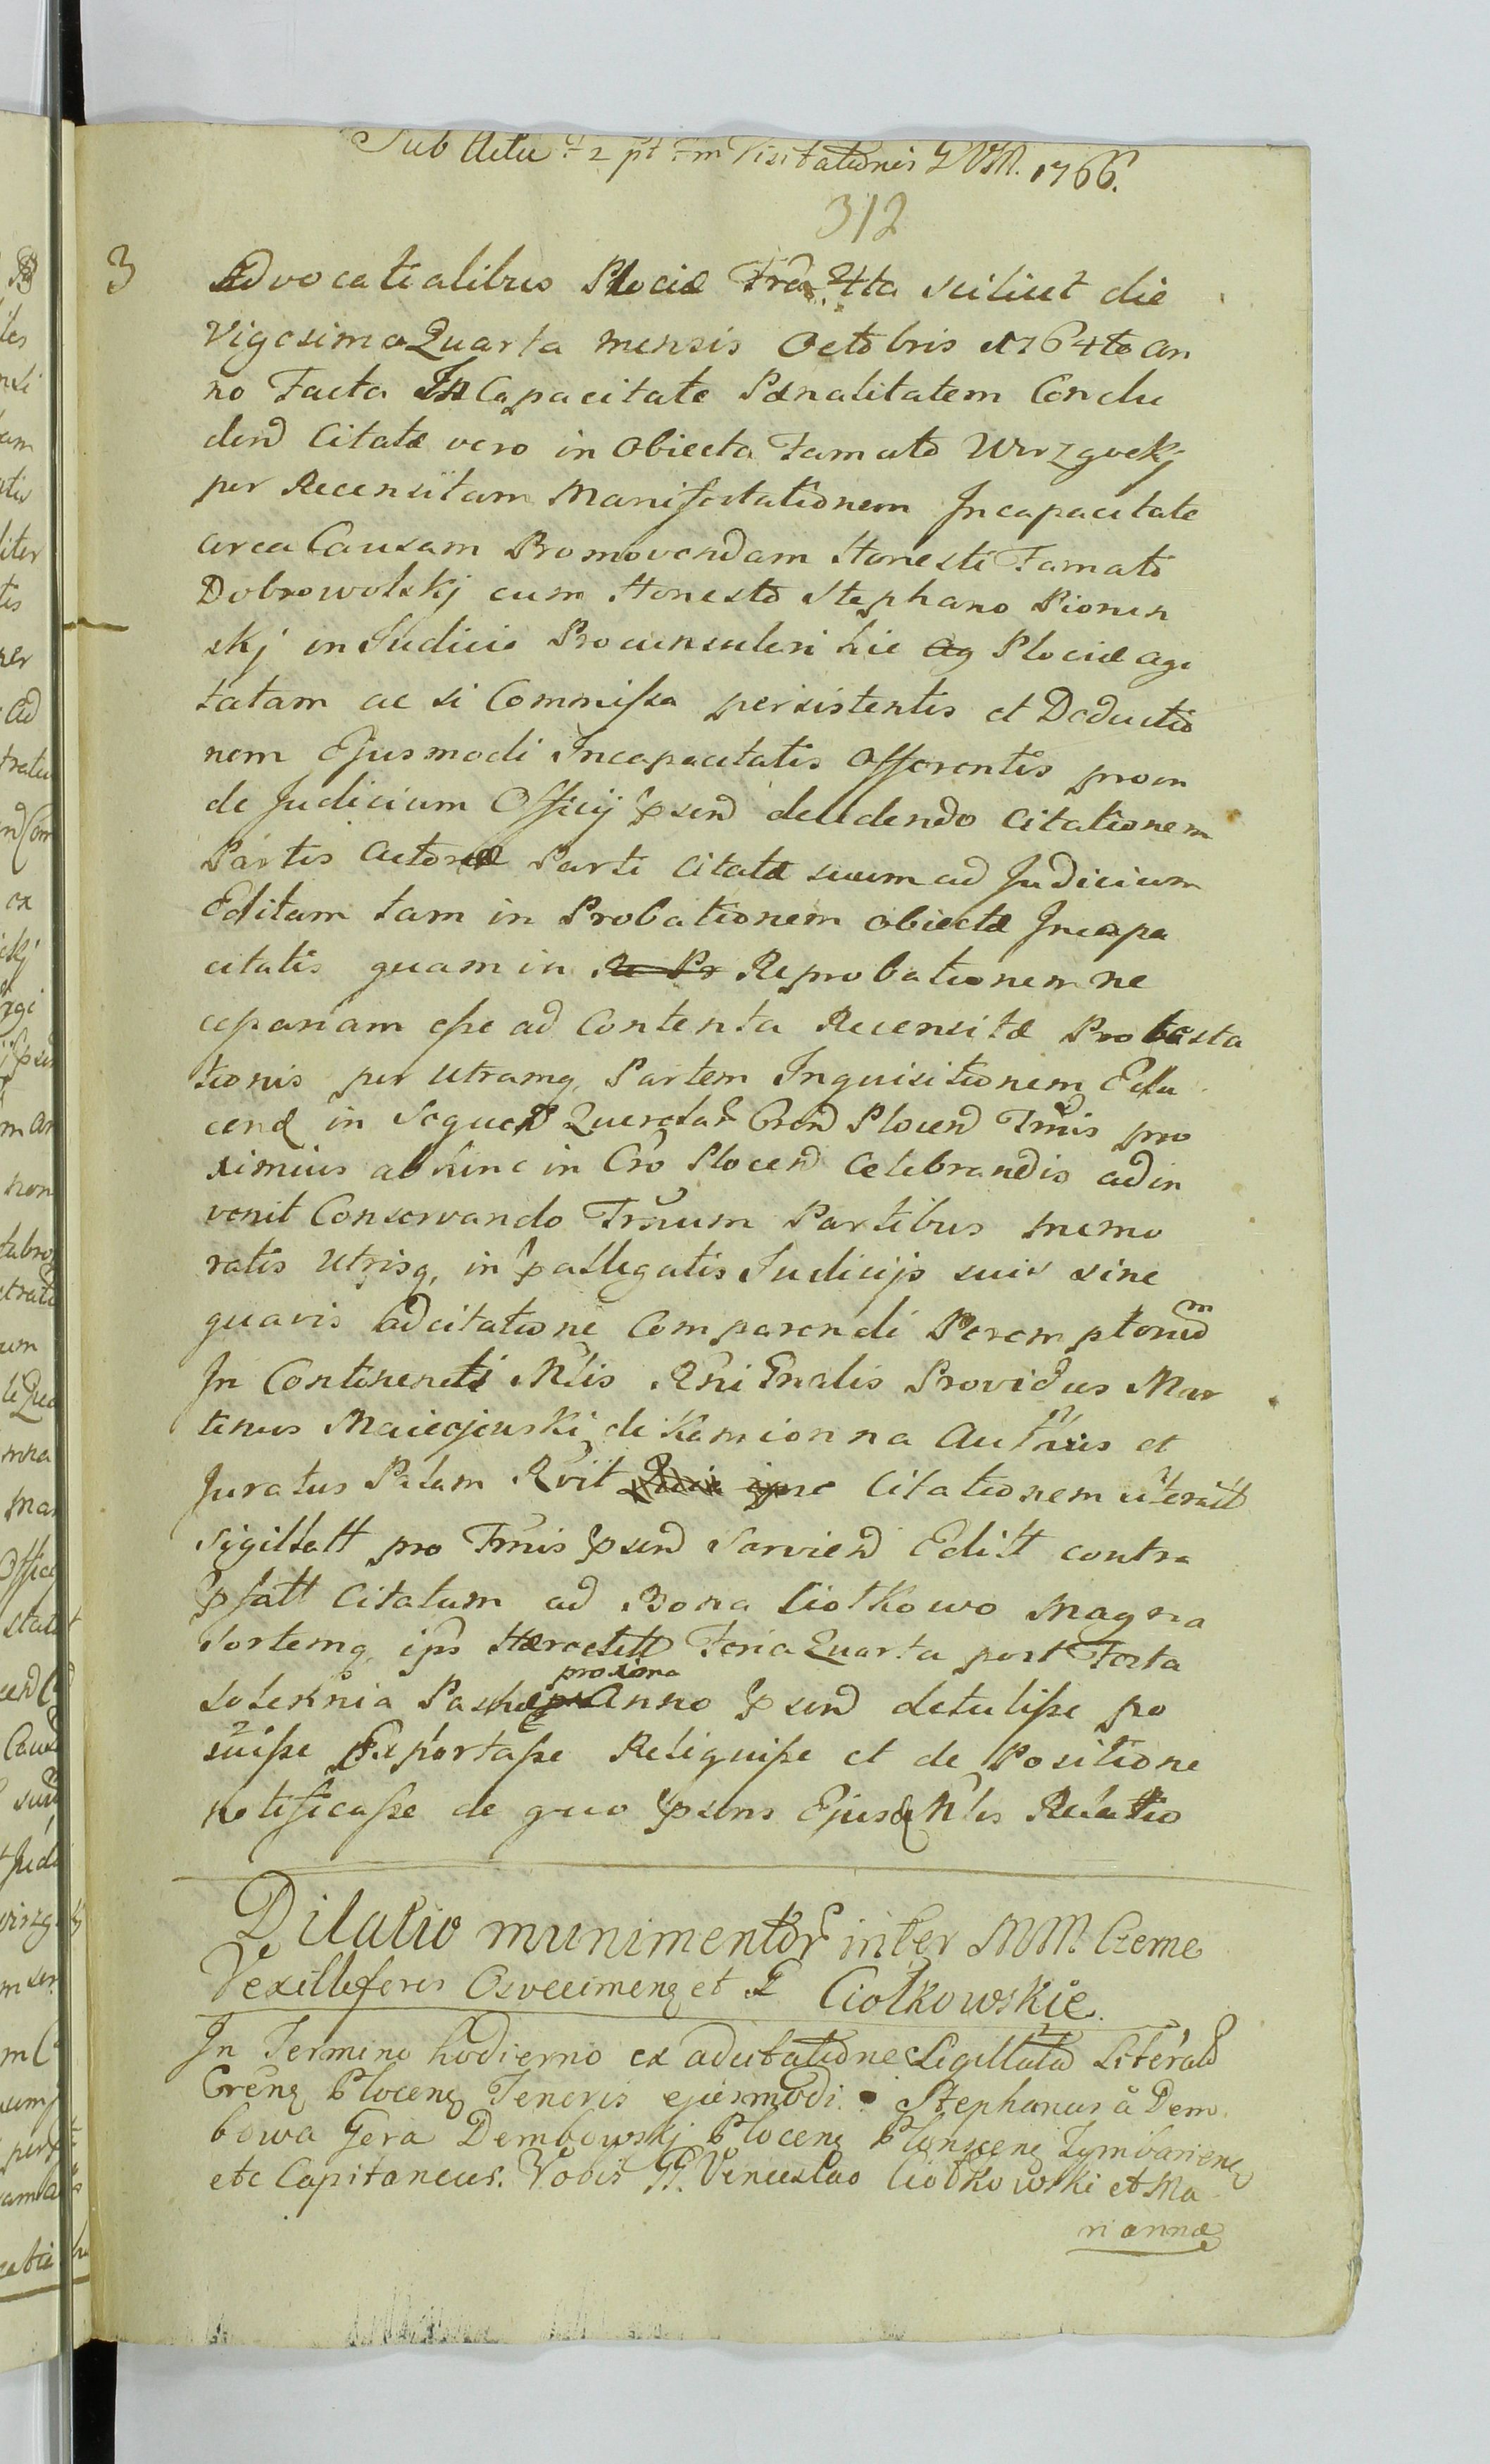 Sub Actu F 2 pt Fm Visitationis BVM. 1766.
312
3
Advocatialibus Plociæ Fra 4ta scilicet die
Vigesima Quarta mensis Octobris 1764to an
no Facta In Capacitate Pænalitatem Conclu
dend Citatæ vero in obiecta Famato Wirzgocki
per Recensitam Manifestationem Incapacitate
circa Causam Promovendam Honesti Famato
Dobrowolskj cum Honesto Stephano Pionen
skj in Judicio Proconsulari hic Plociæ agi
tatam ac si Commissa persistentis et Deductio
nem Ejusmodi Incapacitatis Offerentis proin
de Judicium Officij psend deludendo Citationem
Partis Actoreæ Parti Citatæ suum ad Judicium
Editam tam in Probationem obiectæ Incapa
citatis quam in Re Pr Reprobationem ne
cessariam esse ad Contenta Recensitæ Protesta
tionis per utramq, Partem Inquisitionem Edu
cend in Sequend Querelar Crend Plocen Trmis pro
ximius abhinc in Cro Plocen Celebrandis adin
venit Conservando Trmum Partibus memo
ratis Utrisq, in pallegatis Judicijs suis sine
quavis adcitatione Comparendi Peremptorium
In Continenti Mlis Rni Gnralis Providus Mar
tinus Maiecjewski de Kamionna Authus et
Juratus Palam Rvit Citationem literalt
Sigillatt pro Trmis psend Serviend Editt contra
psatt Citatum ad Bona Ciołkowo Magna
Sortemq, ips Hæreditt Feria Quarta post Festa
Solennia Paschæ proxima Anno psend detulisse po
suisse Exportasse Reliquisse et de Positione
notificasse de quo psens Ejusd Mlis Relatio
Dilatio munimentor inter MM. Czeme
Vexilleferes Osvecimen et G Ciołkowskie
In Termino hodierno ex adcitatione Sigillata Literalr
Cren Plocen Tenoris ejusmodi. Stephanus â Dem
bowa Gora Dembowskj Plocen Plonscen Tymbarien
etc Capitaneus. Vobis GG. Venceslao Ciołkowski et Ma
riannæ